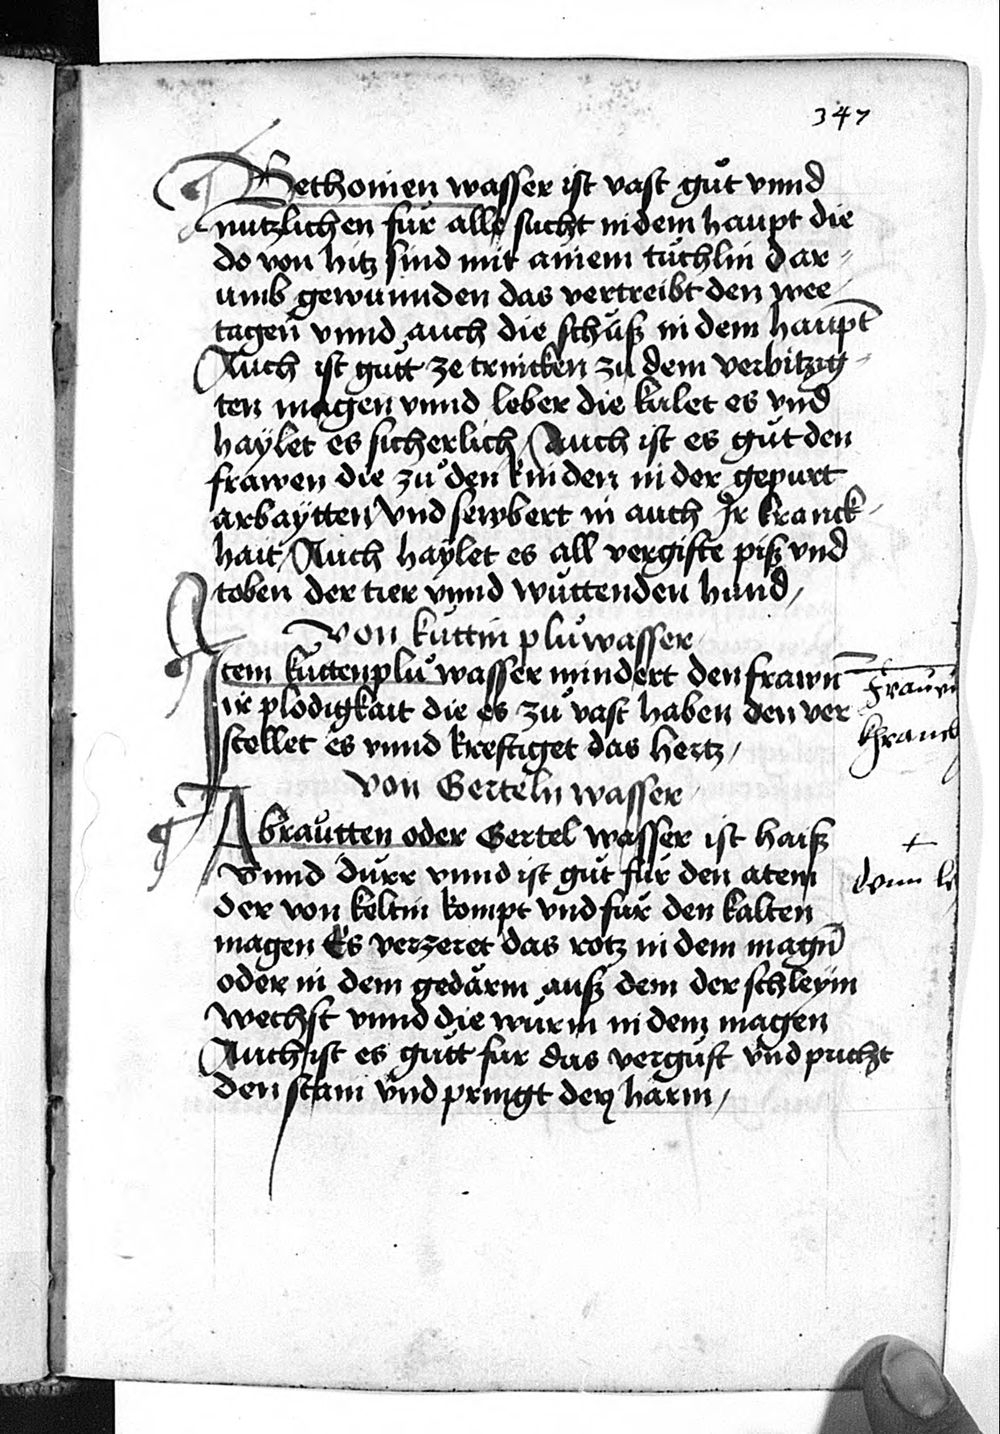 347
Bethonien wasser ist vast gůt vnnd
nutzlichen für alle sucht in dem haupt die
do von hitz sind mit ainem tüchlin dar=
umb gewunnden das vertreibt den wee
tagen̄ vnnd auch die schüß in dem haupt
Auch ist gůtt ze trincken zů dem verhitzig=
ten magen vnnd leber die kület es vnd
haÿlet es sicherlich / Auch ist es gůt den
frawen die zů den kinden in der gepurt
arbaÿtten / vnd sewbert in auch Ir kranck=
hait / Auch haÿlet es all vergifte piß vnd
toben der tier vnnd wüttenden hund /
Von küttin plůwasser
Item küttenplů wasser mindert den frawn̄
ir plodigkait die es zů vast haben den ver
stellet es vnnd kreftiget das hertz /
Frauen
khranck
Von Gerteln wasser
Abrautten oder Gertel wasser ist haiß
Vnnd dürr vnnd ist gůt für den atem
der von keltin kompt vnd für den kalten
magen Es verzeret das rotz in dem magn̄
oder in dem gedärm auß dem der schleÿm
wechst vnnd die würm in dem magen
Auch ist es gůtt für das vergift vnd pricht
den stain vnd pringt den harm /
+